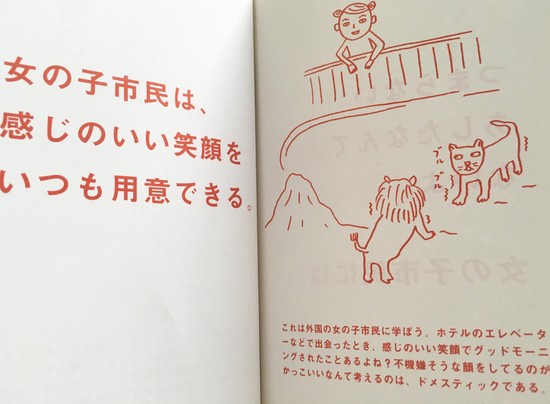 女の子市民は、
感じのいい笑顔を
いつも用意できる。
ブルブル
ブルブル
これは外国の女の子市民に学ぼう。ホテルのエレベータ
ーなどで出会ったとき、感じのいい笑顔でグッドモーニ
ングされたことあるよね？不機嫌そうな顔をしてるのが
かっこいいなんて考えるのは、ドメスティックである。